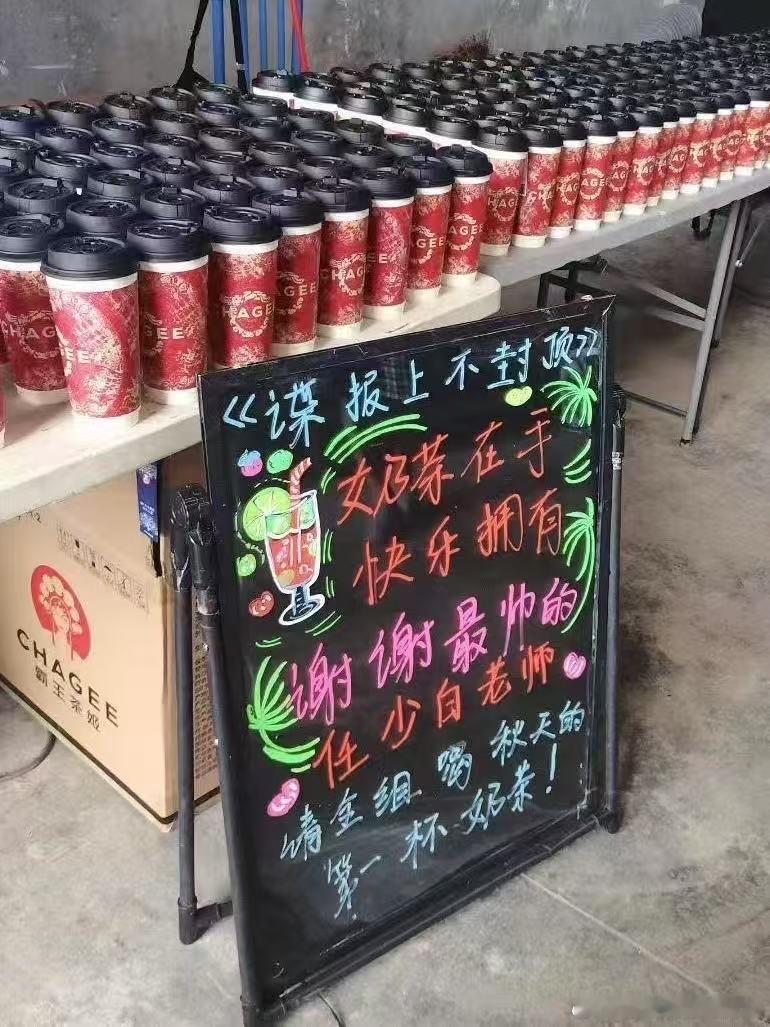 CHAGEE
CHAGEE
CHAGEE
CHAGEE
CHAGEE
CHAGEE
CHAGEE
霸王茶姬
《谍报上不封顶》
奶茶在手
快乐拥有
谢谢最帅的
任少白老师
请全组喝秋天的
第一杯奶茶!